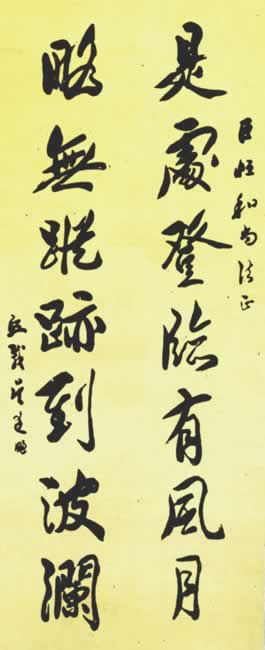 和尚法正
是處登臨有風月
略無蹤跡到波瀾